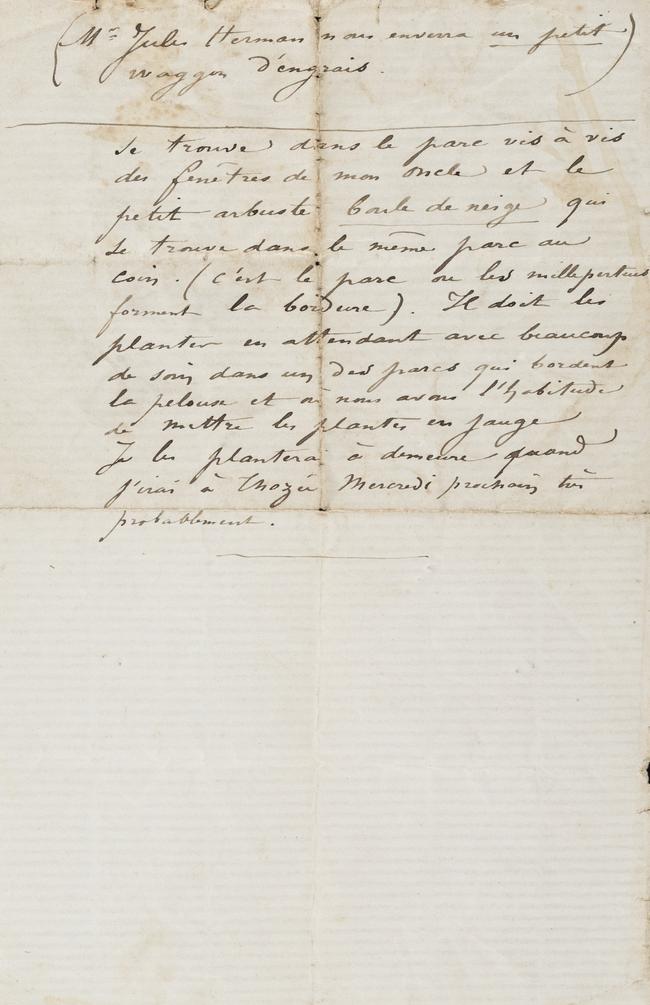 (Mr Jules Herman nous enverra un petit)
waggon d'engrais.
se trouve dans le parc vis à vis
des fenêtres de mon oncle et le
petit arbuste boule de neige qui
se trouve dans le même parc au
coin. (c'est le parc ou les millepertuis
forment la bordure). Il doit les
planter en attendant avec beaucoup
de soin dans un des parcs qui bordent
la pelouse et où nous avons l'habitude
de mettre les plantes en jauge
Je les planterai à demeure quand
j'irai à Thozée Mercredi prochain très
probablement.